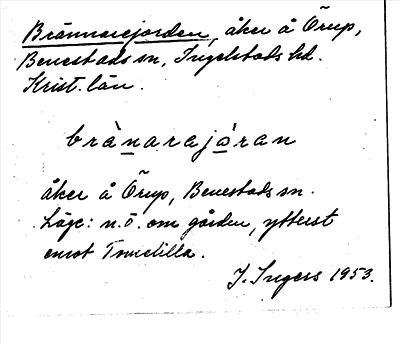 Brännarejorden, åker å Örup,
Benestads sn, Ingelstads hd.
Krist. län.
brànarajó̱ran
åker å Örup, Benestads sn.
Läge: n.ö. om gården, ytterst
emot Tomelilla.
I. Ingers 1953.